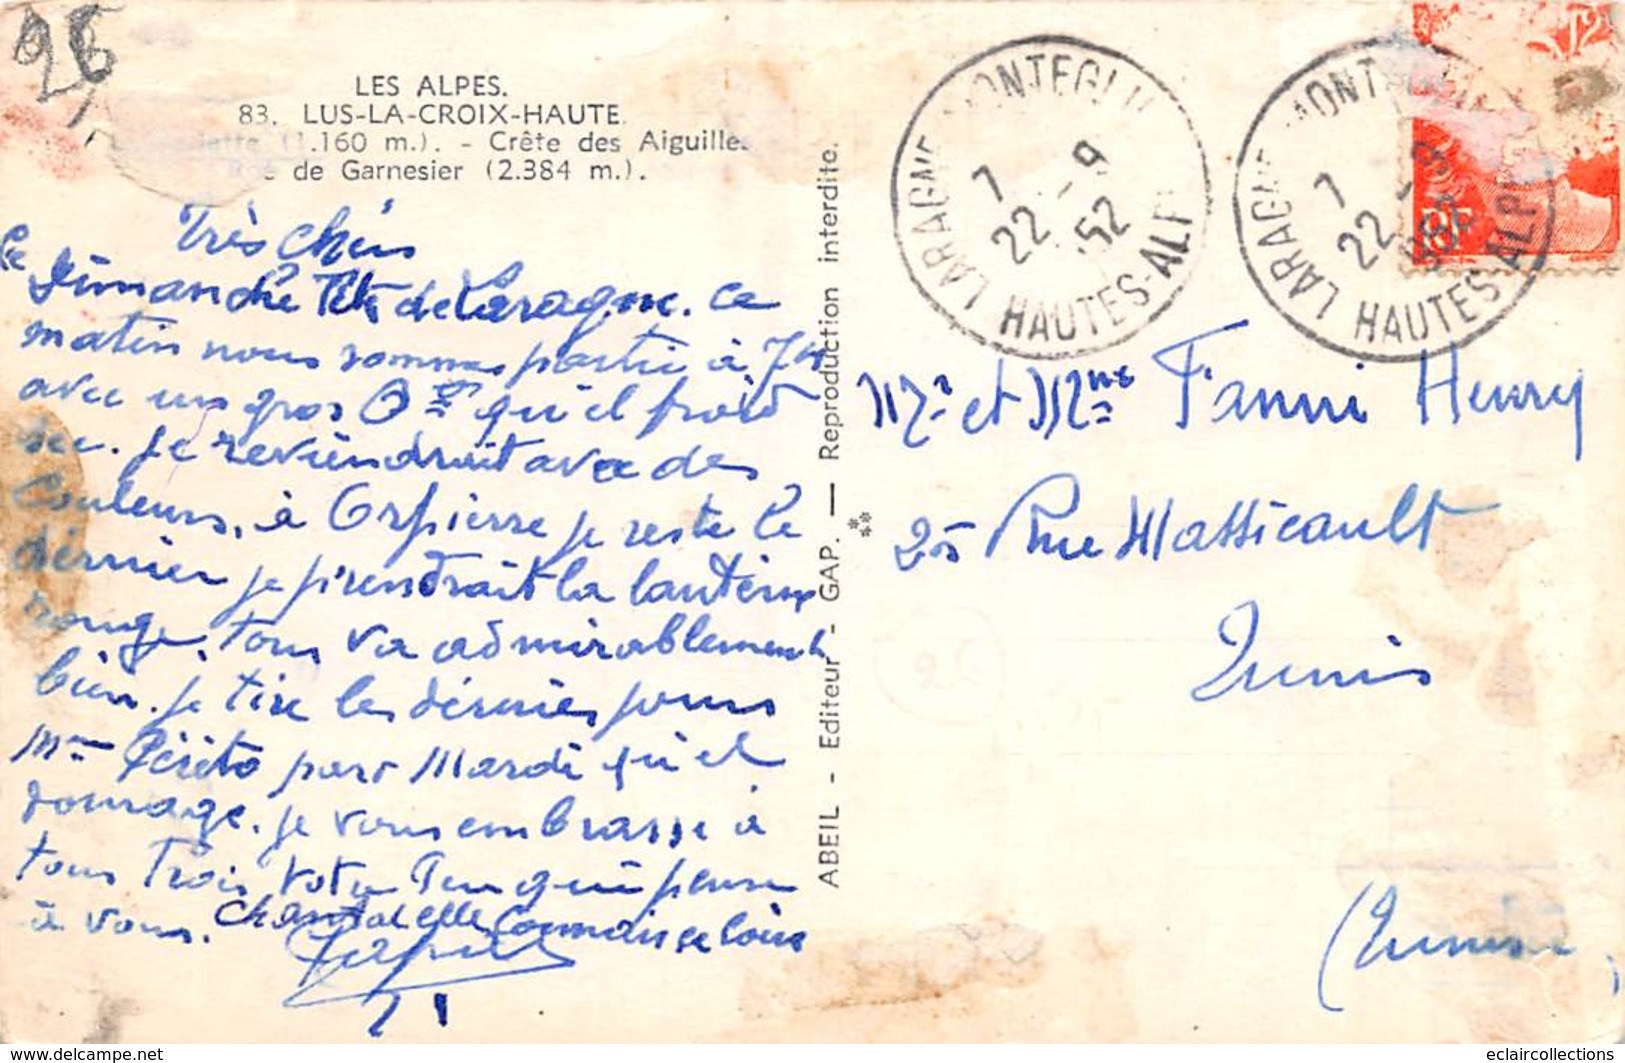 96
LES ALPES.
83. LUS-LA-CROIX-HAUTE.
(1.160 m.). - Crête des Aiguilles
Roc de Garnesier (2.384 m.).
Très chers
ce
dimanche fête de Laragne. ce
matin nous sommes partis à 7h
avec un gros qu'il froid
sec. je reviendrait avec des
couleurs, à Orpierre je reste le
dernier je prendrait la lanterne
rouge. tous va admirablement
bien. je tire les derniers jours
Mme pars Mardi qu'el
domage. je vous embrasse à
tous trois votre qui pense
à vous. Chantal elle connais ce coin
ABEIL - Editeur - GAP. — Reproduction interdite.
LARAGNE MONTEGLIN
7
22 - 9
52
HAUTES-ALP
LARAGNE MONT
7
22 - 9
52
HAUTES-ALP
12
RF
Mr et Mme Fanni Henry
25 Rue Massicault
Tunis
(Tunisie)
www.delcampe.net
eclaircollections